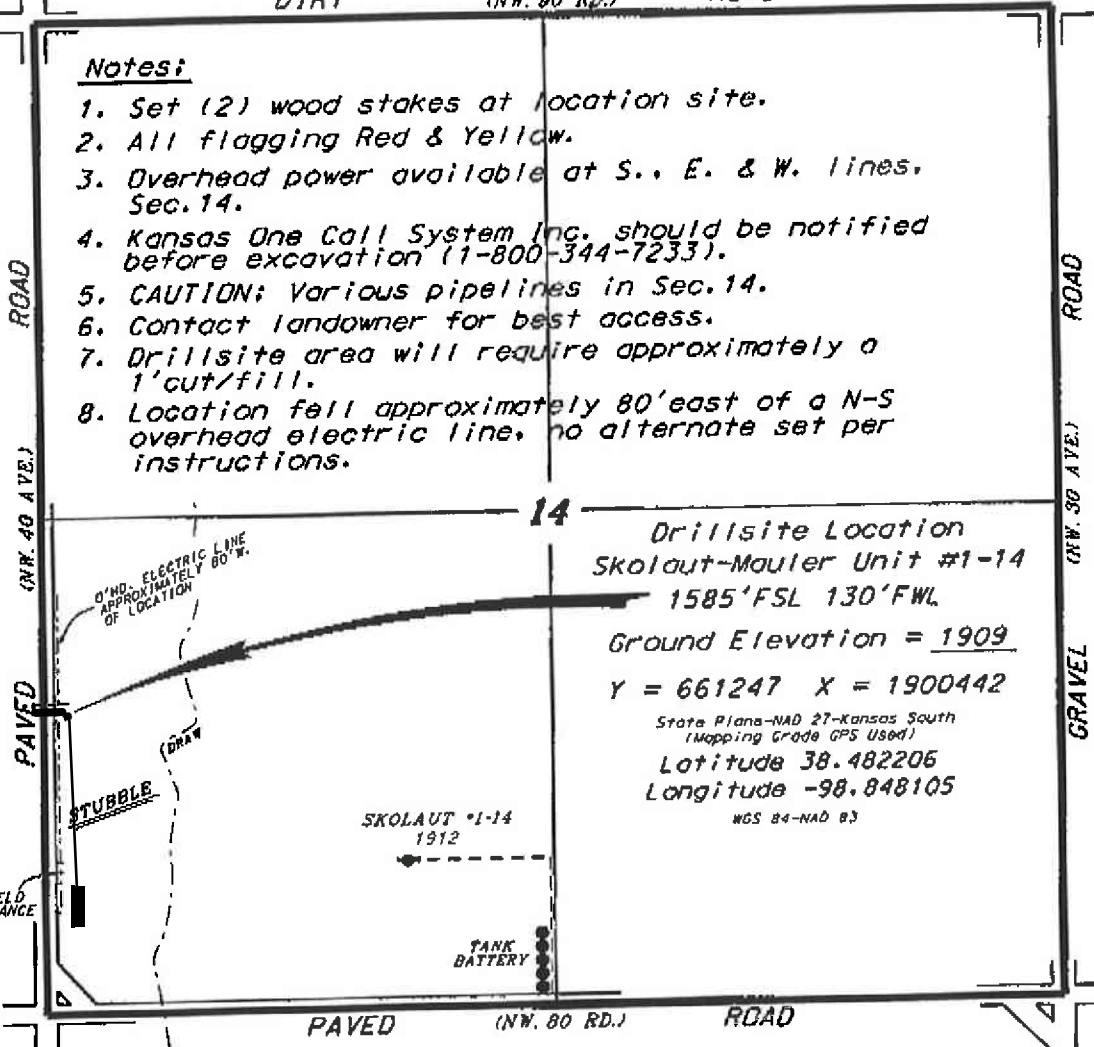 DIRT
Notes:
1. Set (2) wood stakes at location site.
2. All flagging Red & Yellow.
3. Overhead power available at S., E. & W. lines,
Sec.14.
4. Kansas One Call System Inc. should be notified
before excavation (1-800-344-7233).
5. CAUTION: Various pipelines in Sec.14.
6. Contact landowner for best access.
7. Drillsite area will require approximately a
1'cut/fill.
8. Location fell approximately 80'east of a N-S
overhead electric line, no alternate set per
instructions.
ROAD
(NW. 40 AVE.)
PAVED
ROAD
(NW. 30 AVE.)
GRAVEL
14
O'HD. ELECTRIC LINE
APPROXIMATELY 80'W.
OF LOCATION
Drillsite Location
Skolaut-Mauler Unit #1-14
1585'FSL 130'FWL
Ground Elevation = 1909
Y = 661247 X = 1900442
State Plane-NAD 27-Kansas South
(Mapping Grade GPS Used)
Latitude 38.482206
Longitude -98.848105
WGS 84-NAD 83
DRAW
STUBBLE
SKOLAUT #1-14
1912
TANK
BATTERY
PAVED (NW. 80 RD.) ROAD